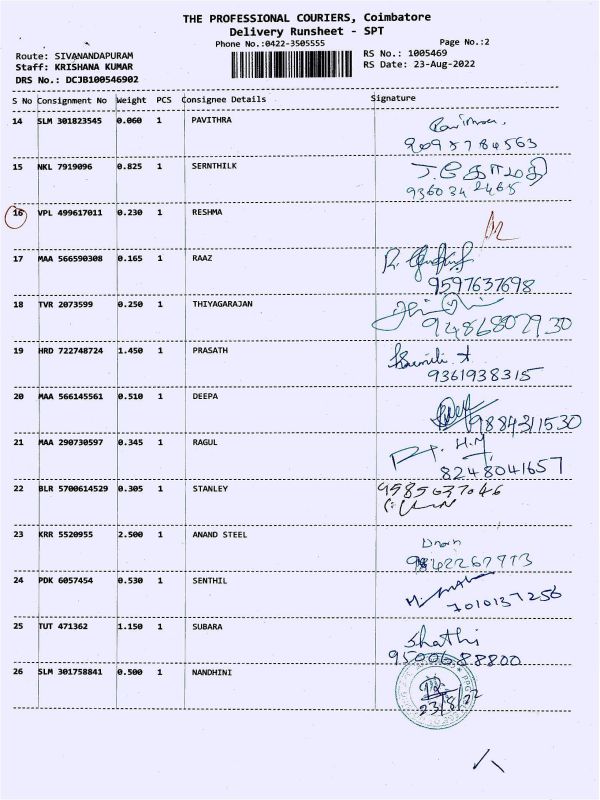 THE PROFESSIONAL COURIERS, Coimbatore
Delivery Runsheet - SPT
Phone No.:0422-3505555
Page No.:2
Route: SIVANANDAPURAM
RS No.: 1005469
Staff: KRISHANA KUMAR
RS Date: 23-Aug-2022
DRS No.: DCJB100546902
S No Consignment No Weight PCS Consignee Details Signature
14 SLM 301823545 0.060 1 PAVITHRA
15 NKL 7919096 0.825 1 SERNTHILK
9360342465
16 VPL 499617011 0.230 1 RESHMA
17 MAA 566590308 0.165 1 RAAZ
9597637698
18 TVR 2073599 0.250 1 THIYAGARAJAN
9486807930
19 HRD 722748724 1.450 1 PRASATH
9361938315
20 MAA 566145561 0.510 1 DEEPA
9884311530
21 MAA 290730597 0.345 1 RAGUL
8248041657
22 BLR 5700614529 0.305 1 STANLEY
9585637046
23 KRR 5520955 2.500 1 ANAND STEEL
24 PDK 6057454 0.530 1 SENTHIL
7010137256
25 TUT 471362 1.150 1 SUBARA
Shathi
9500688800
26 SLM 301758841 0.500 1 NANDHINI
23/8/22